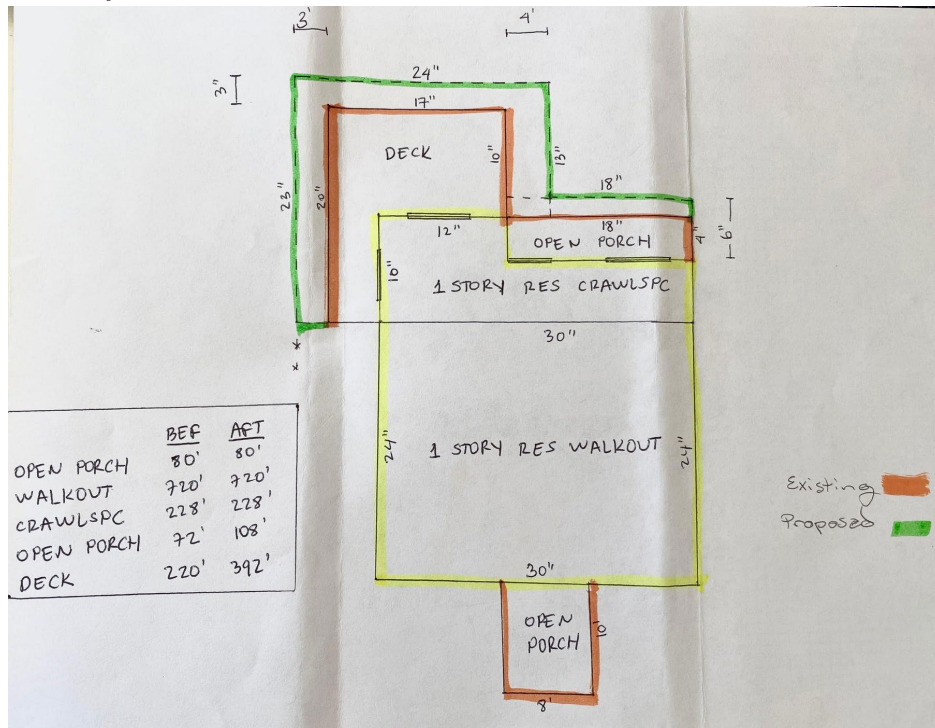 3' 4'
3"
24"
17"
DECK
10"
13"
23"
20"
18"
12"
18"
OPEN PORCH
4"
6"
10"
1 STORY RES CRAWLSPC
30"
* *
24"
1 STORY RES WALKOUT
24"
BEF AFT
OPEN PORCH 80' 80'
WALKOUT 720' 720'
CRAWLSPC 228' 228'
OPEN PORCH 72' 108'
DECK 220' 392'
Existing
Proposed
30"
OPEN
PORCH
10'
8'